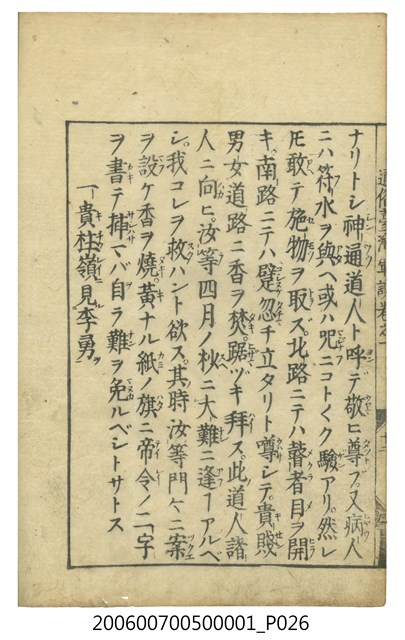 ナリトシ神通道人ト呼テ敬ヒ尊フ。又病人
ニハ符水ヲ與ヘ或ハ咒ニコト〱ク驗アリ。然レ
𪜈敢テ施物ヲ取ズ。北路ニテハ瞽者目ヲ開
キ。南路ニテハ躄忽チ立タリト噂シテ。貴賤
男女道路ニ香ヲ焚。踞ヅキ拜ス。此道人諸
人ニ向ヒ。汝等四月ノ杪ニ大難ニ逢ヿアルベ
シ。我コレヲ救ハント欲ス。其時汝等門ケニ案
ヲ設ケ香ヲ燒。黃ナル紙ノ旗ニ帝令ノ二字
ヲ書テ揷マバ自ラ難ヲ免ルベシトサトス
貴柱嶺見李勇
通俗臺灣軍談卷之一
200600700500001_P026